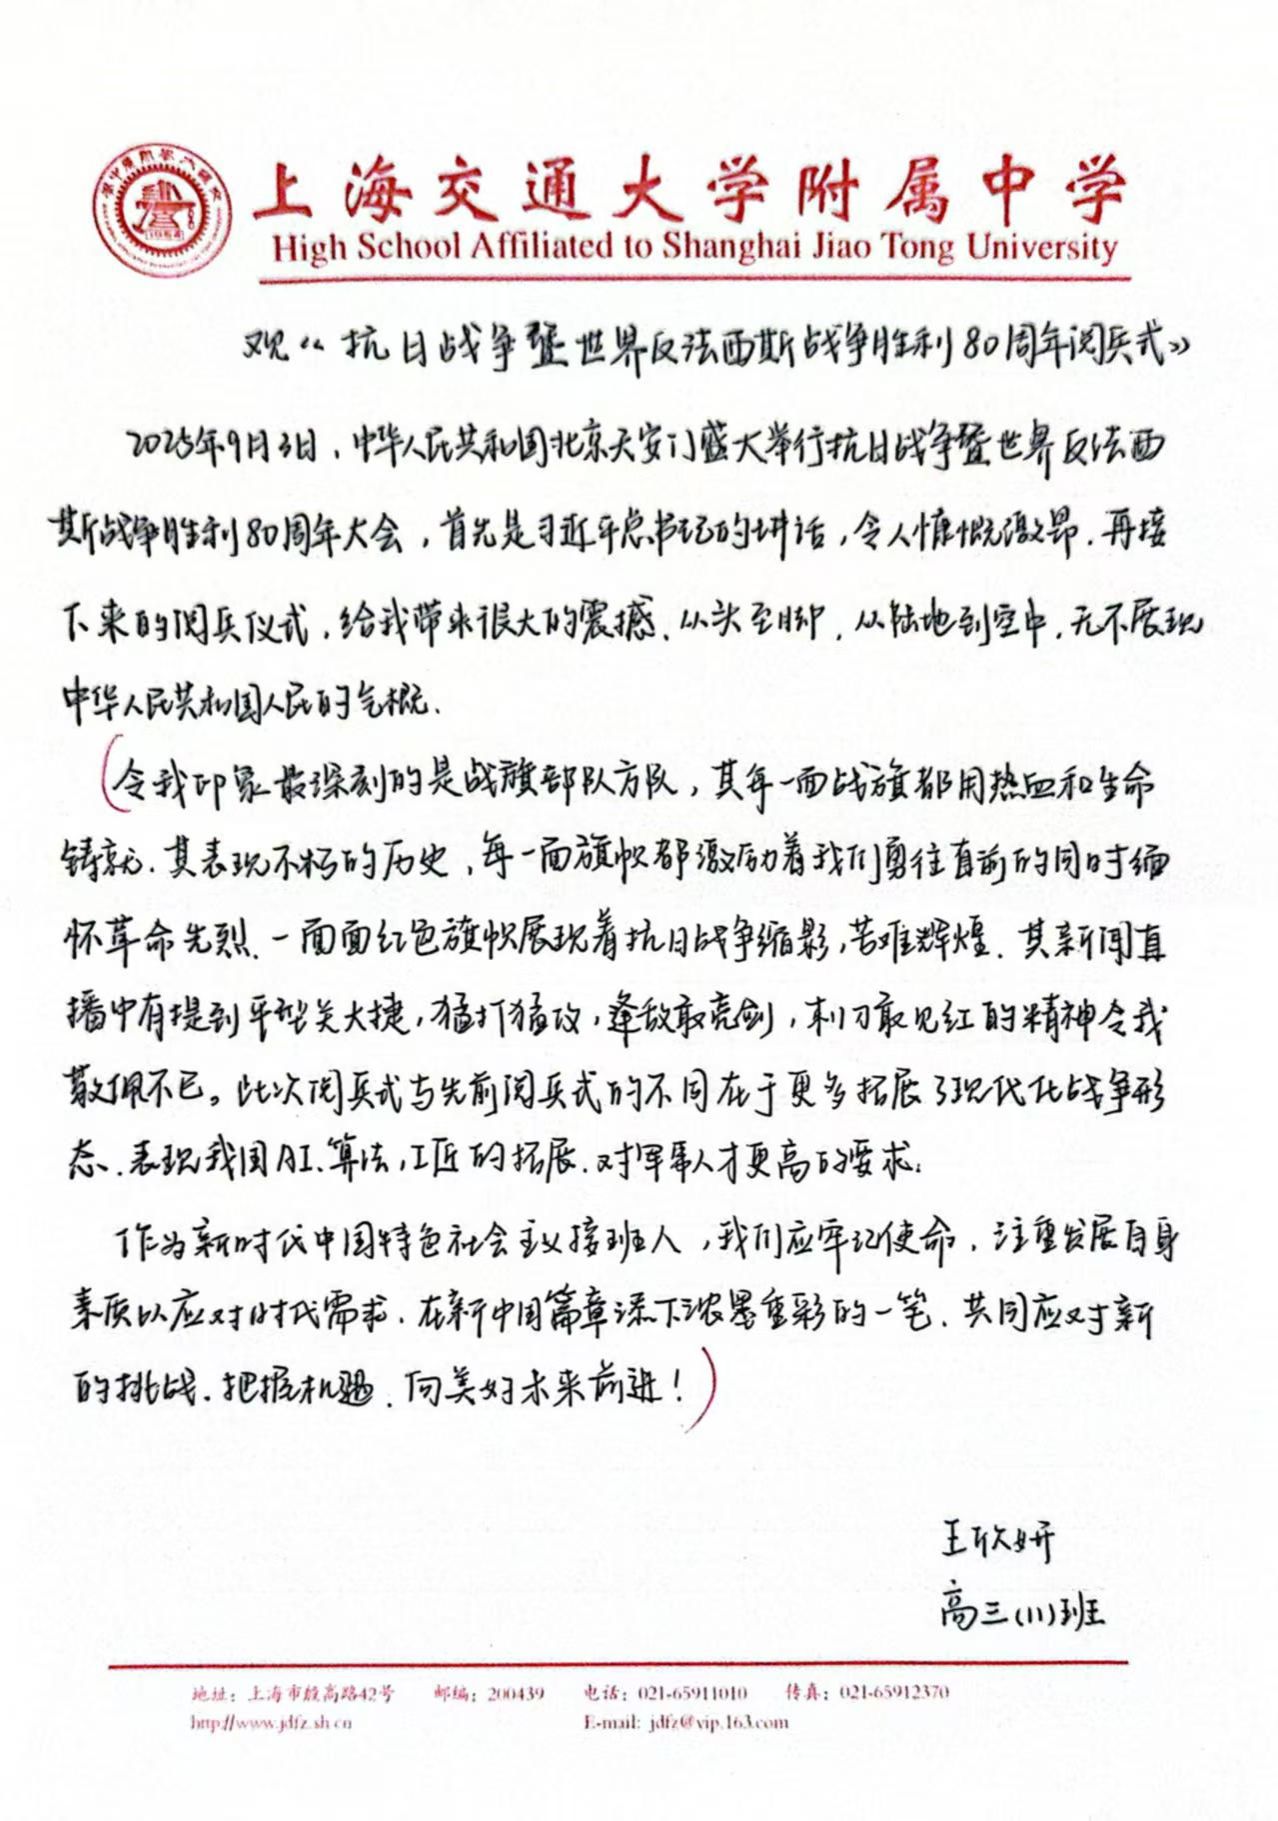 上海交通大学附属中学
High School Affiliated to Shanghai Jiao Tong University
观《抗日战争暨世界反法西斯战争胜利80周年阅兵式》
2025年9月3日，中华人民共和国北京天安门盛大举行抗日战争暨世界反法西
斯战争胜利80周年大会，首先是习近平总书记的讲话，令人慷慨激昂.再接
下来的阅兵仪式，给我带来很大的震撼.从头至脚，从陆地到空中，无不展现
中华人民共和国人民的气概.
(令我印象最深刻的是战旗部队方队，其每一面战旗都用热血和生命
铸就.其表现不朽的历史，每一面旗帜都激励着我们勇往直前的同时缅
怀革命先烈.一面面红色旗帜展现着抗日战争缩影，苦难辉煌.其新闻直
播中有提到平型关大捷，猛打猛攻，逢敌敢亮剑，刺刀敢见红的精神令我
敬佩不已。此次阅兵式与先前阅兵式的不同在于更多拓展了现代化战争形
态.表现我国AI、算法，工匠的拓展.对军事人才更高的要求.
作为新时代中国特色社会主义接班人，我们应牢记使命，注重发展自身
素质以应对时代需求.在新中国篇章添下浓墨重彩的一笔.共同应对新
的挑战.把握机遇.向美好未来前进！)
王欣妍
高三(11)班
地址：上海市殷高路42号 邮编：200439 电话：021-65911010 传真：021-65912370
http://www.jdfz.sh.cn E-mail: jdfz@vip.163.com